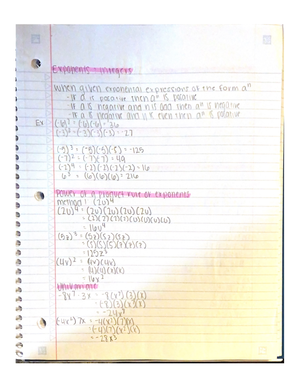 Exponents - Integers
When given exponential expressions of the form aⁿ
- If a is positive then aⁿ is positive
- If a is negative and n is odd then aⁿ is negative
- If a is negative and n is even then aⁿ is positive
Ex (-6)² = (-6)(-6) = 36
(-3)³ = (-3)(-3)(-3) = -27
(-5)³ = (-5)(-5)(-5) = -125
(-7)² = (-7)(-7) = 49
(-2)⁴ = (-2)(-2)(-2)(-2) = 16
6³ = (6)(6)(6) = 216
Power of a product rule of exponents
method 1 (2u)⁴
(2u)⁴ = (2u)(2u)(2u)(2u)
= (2)(2)(2)(2)(u)(u)(u)(u)
16u⁴
(5z)³ = (5z)(5z)(5z)
= (5)(5)(5)(z)(z)(z)
= 125z³
(4x)² = (4x)(4x)
= (4)(4)(x)(x)
= 16x²
Univariate
-8x² 3x = -8(x²)(3)(x)
= (-8)(3)(x²)(x)
= -24x³
(-4x²) 7x = -4(x²)(7)(x)
= (-4)(7)(x²)(x)
= -28x³